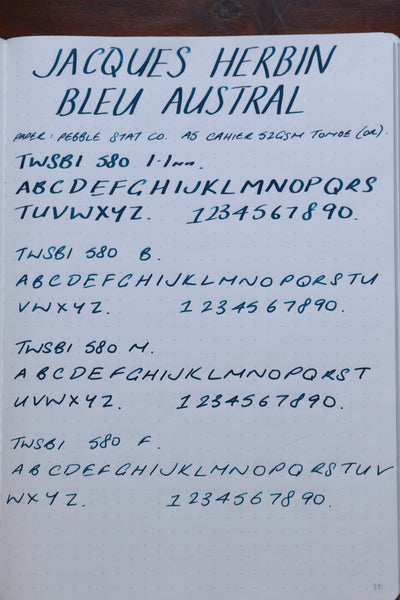 JACQUES HERBIN
BLEU AUSTRAL
PAPER: PEBBLE STAT CO. A5 CAHIER 52GSM TOMOE (OR).
TWSBI 580 1.1mm.
ABCDEFGHIJKLMNOPQRS
TUVWXYZ. 1234567890.
TWSBI 580 B.
ABCDEFGHIJKLMNOPQRSTU
VWXYZ. 1234567890.
TWSBI 580 M.
ABCDEFGHIJKLMNOPQRST
UVWXYZ. 1234567890.
TWSBI 580 F.
ABCDEFGHIJKLMNOPQRSTUV
WXYZ. 1234567890.